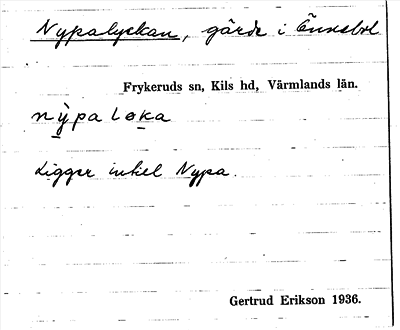 Nypalyckan, gärde i Önnebol
Frykeruds sn, Kils hd, Värmlands län.
nỳpa løka
Ligger intill Nypa.
Gertrud Erikson 1936.